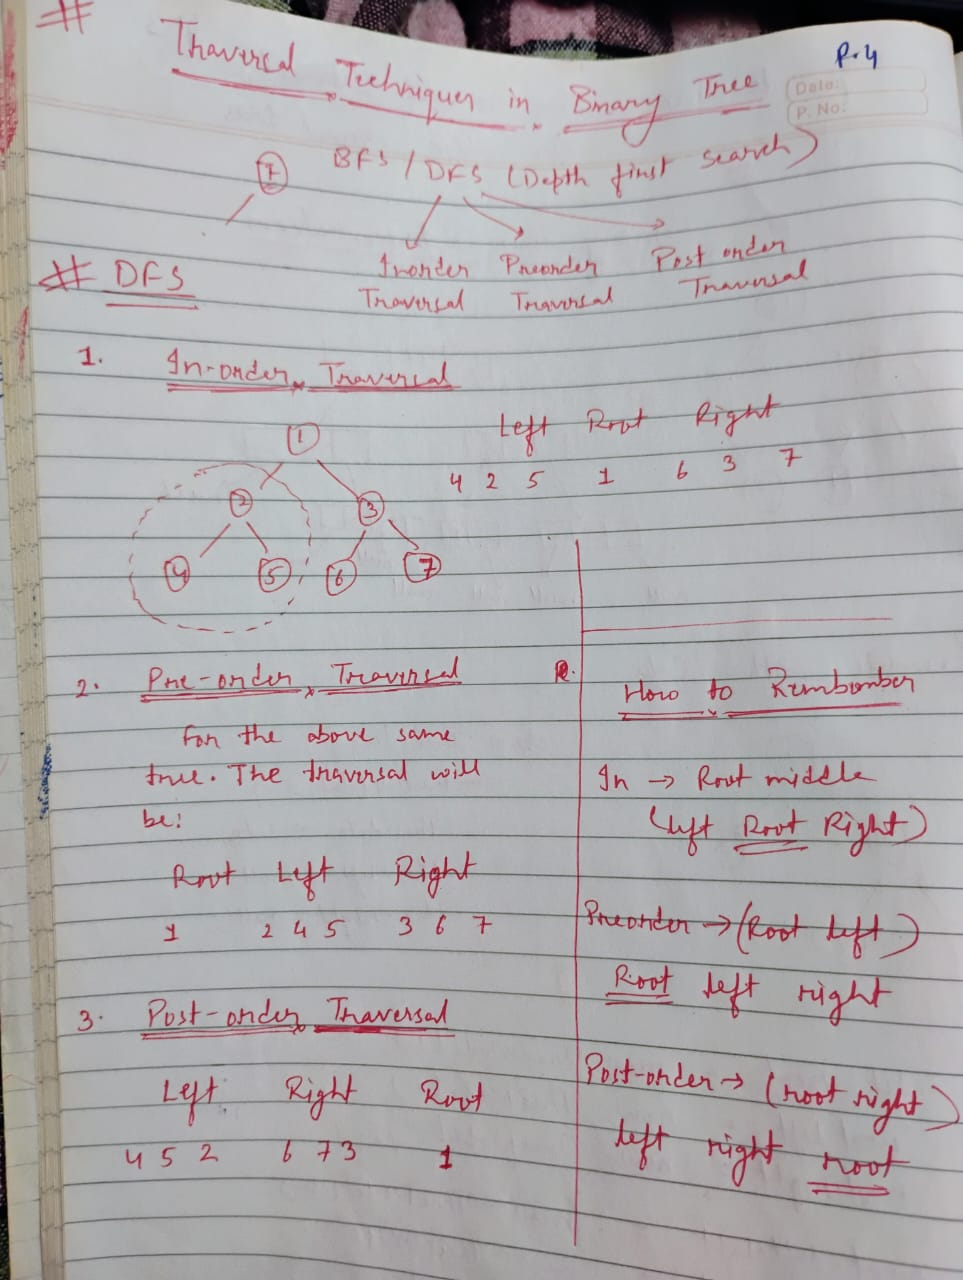 #
Traversal Techniques in Binary Tree
P.4
Date:
P. No:
BFS / DFS (Depth first search)
Inorder Traversal
Preorder Traversal
Post order Traversal
# DFS
1. In-order Traversal
Left Root Right
4 2 5 1 6 3 7
1
2 3
4 5 6 7
2. Pre-order Traversal
For the above same
tree. The traversal will
be:
Root Left Right
1 2 4 5 3 6 7
3. Post-order Traversal
Left Right Root
4 5 2 6 7 3 1
How to Rembomber
In → Root middle
(left Root Right)
Preorder → (Root left)
Root left right
Post-order → (root right)
left right root